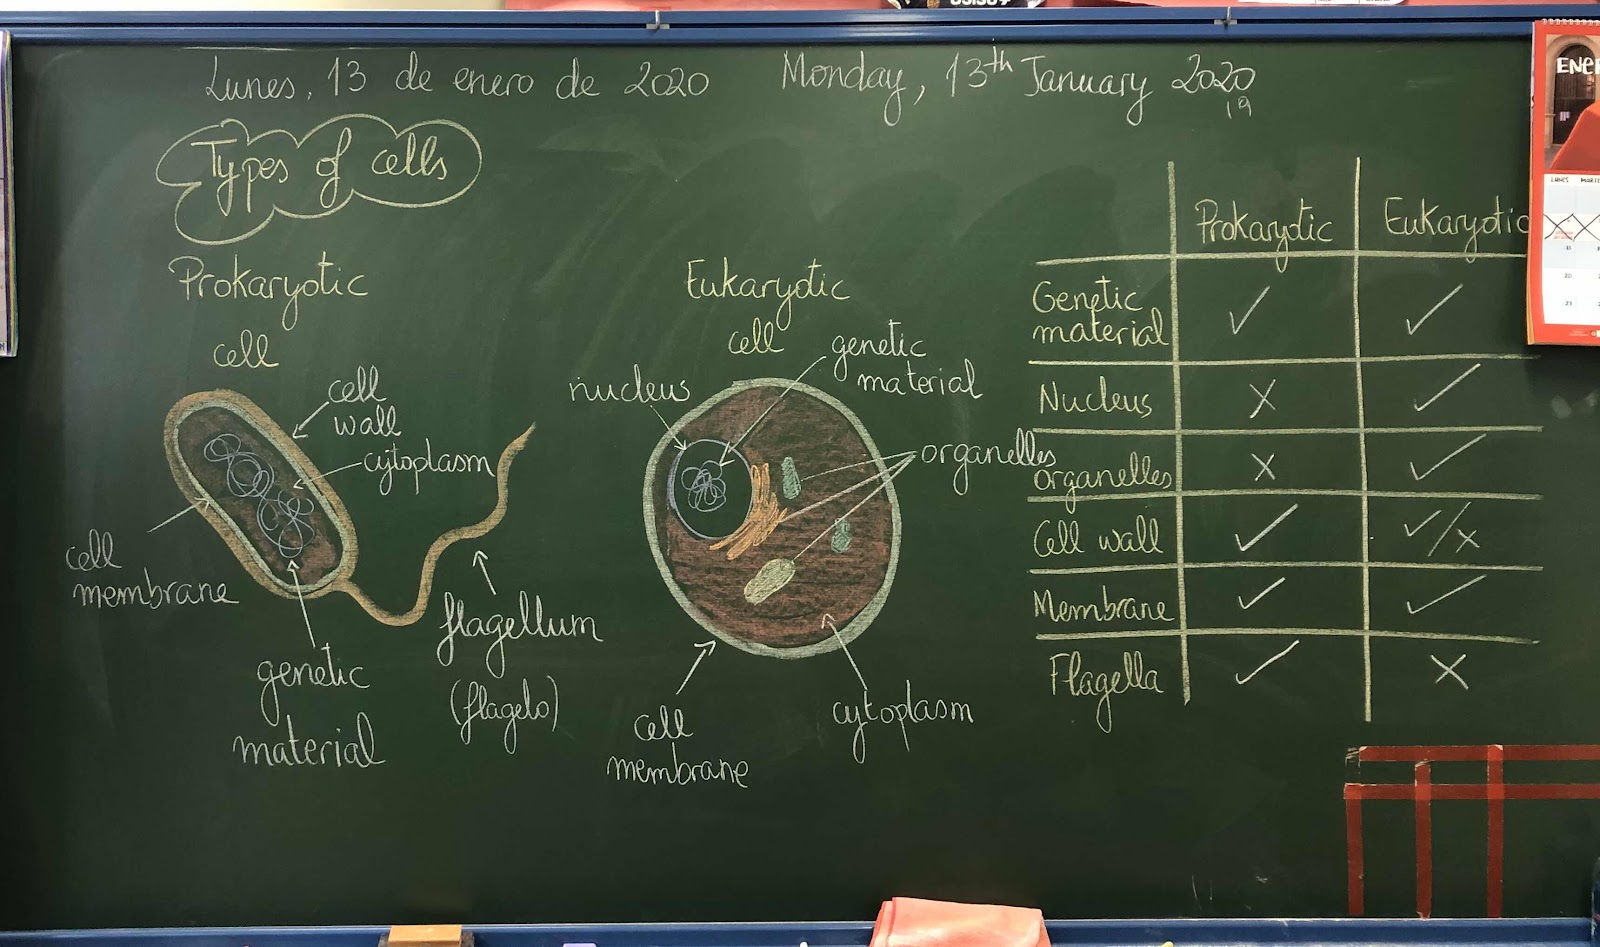 Lunes, 13 de enero de 2020
Monday, 13th January 2020
19
Types of cells
Prokaryotic
cell
cell
wall
cytoplasm
cell
membrane
genetic
material
flagellum
(flagelo)
Eukaryotic
cell
nucleus
genetic
material
organelles
cell
membrane
cytoplasm
Prokaryotic Eukaryotic
Genetic
material ✓ ✓
Nucleus X ✓
organelles X ✓
Cell wall ✓ ✓/x
Membrane ✓ ✓
Flagella ✓ X
ENE
LUNES
20
21